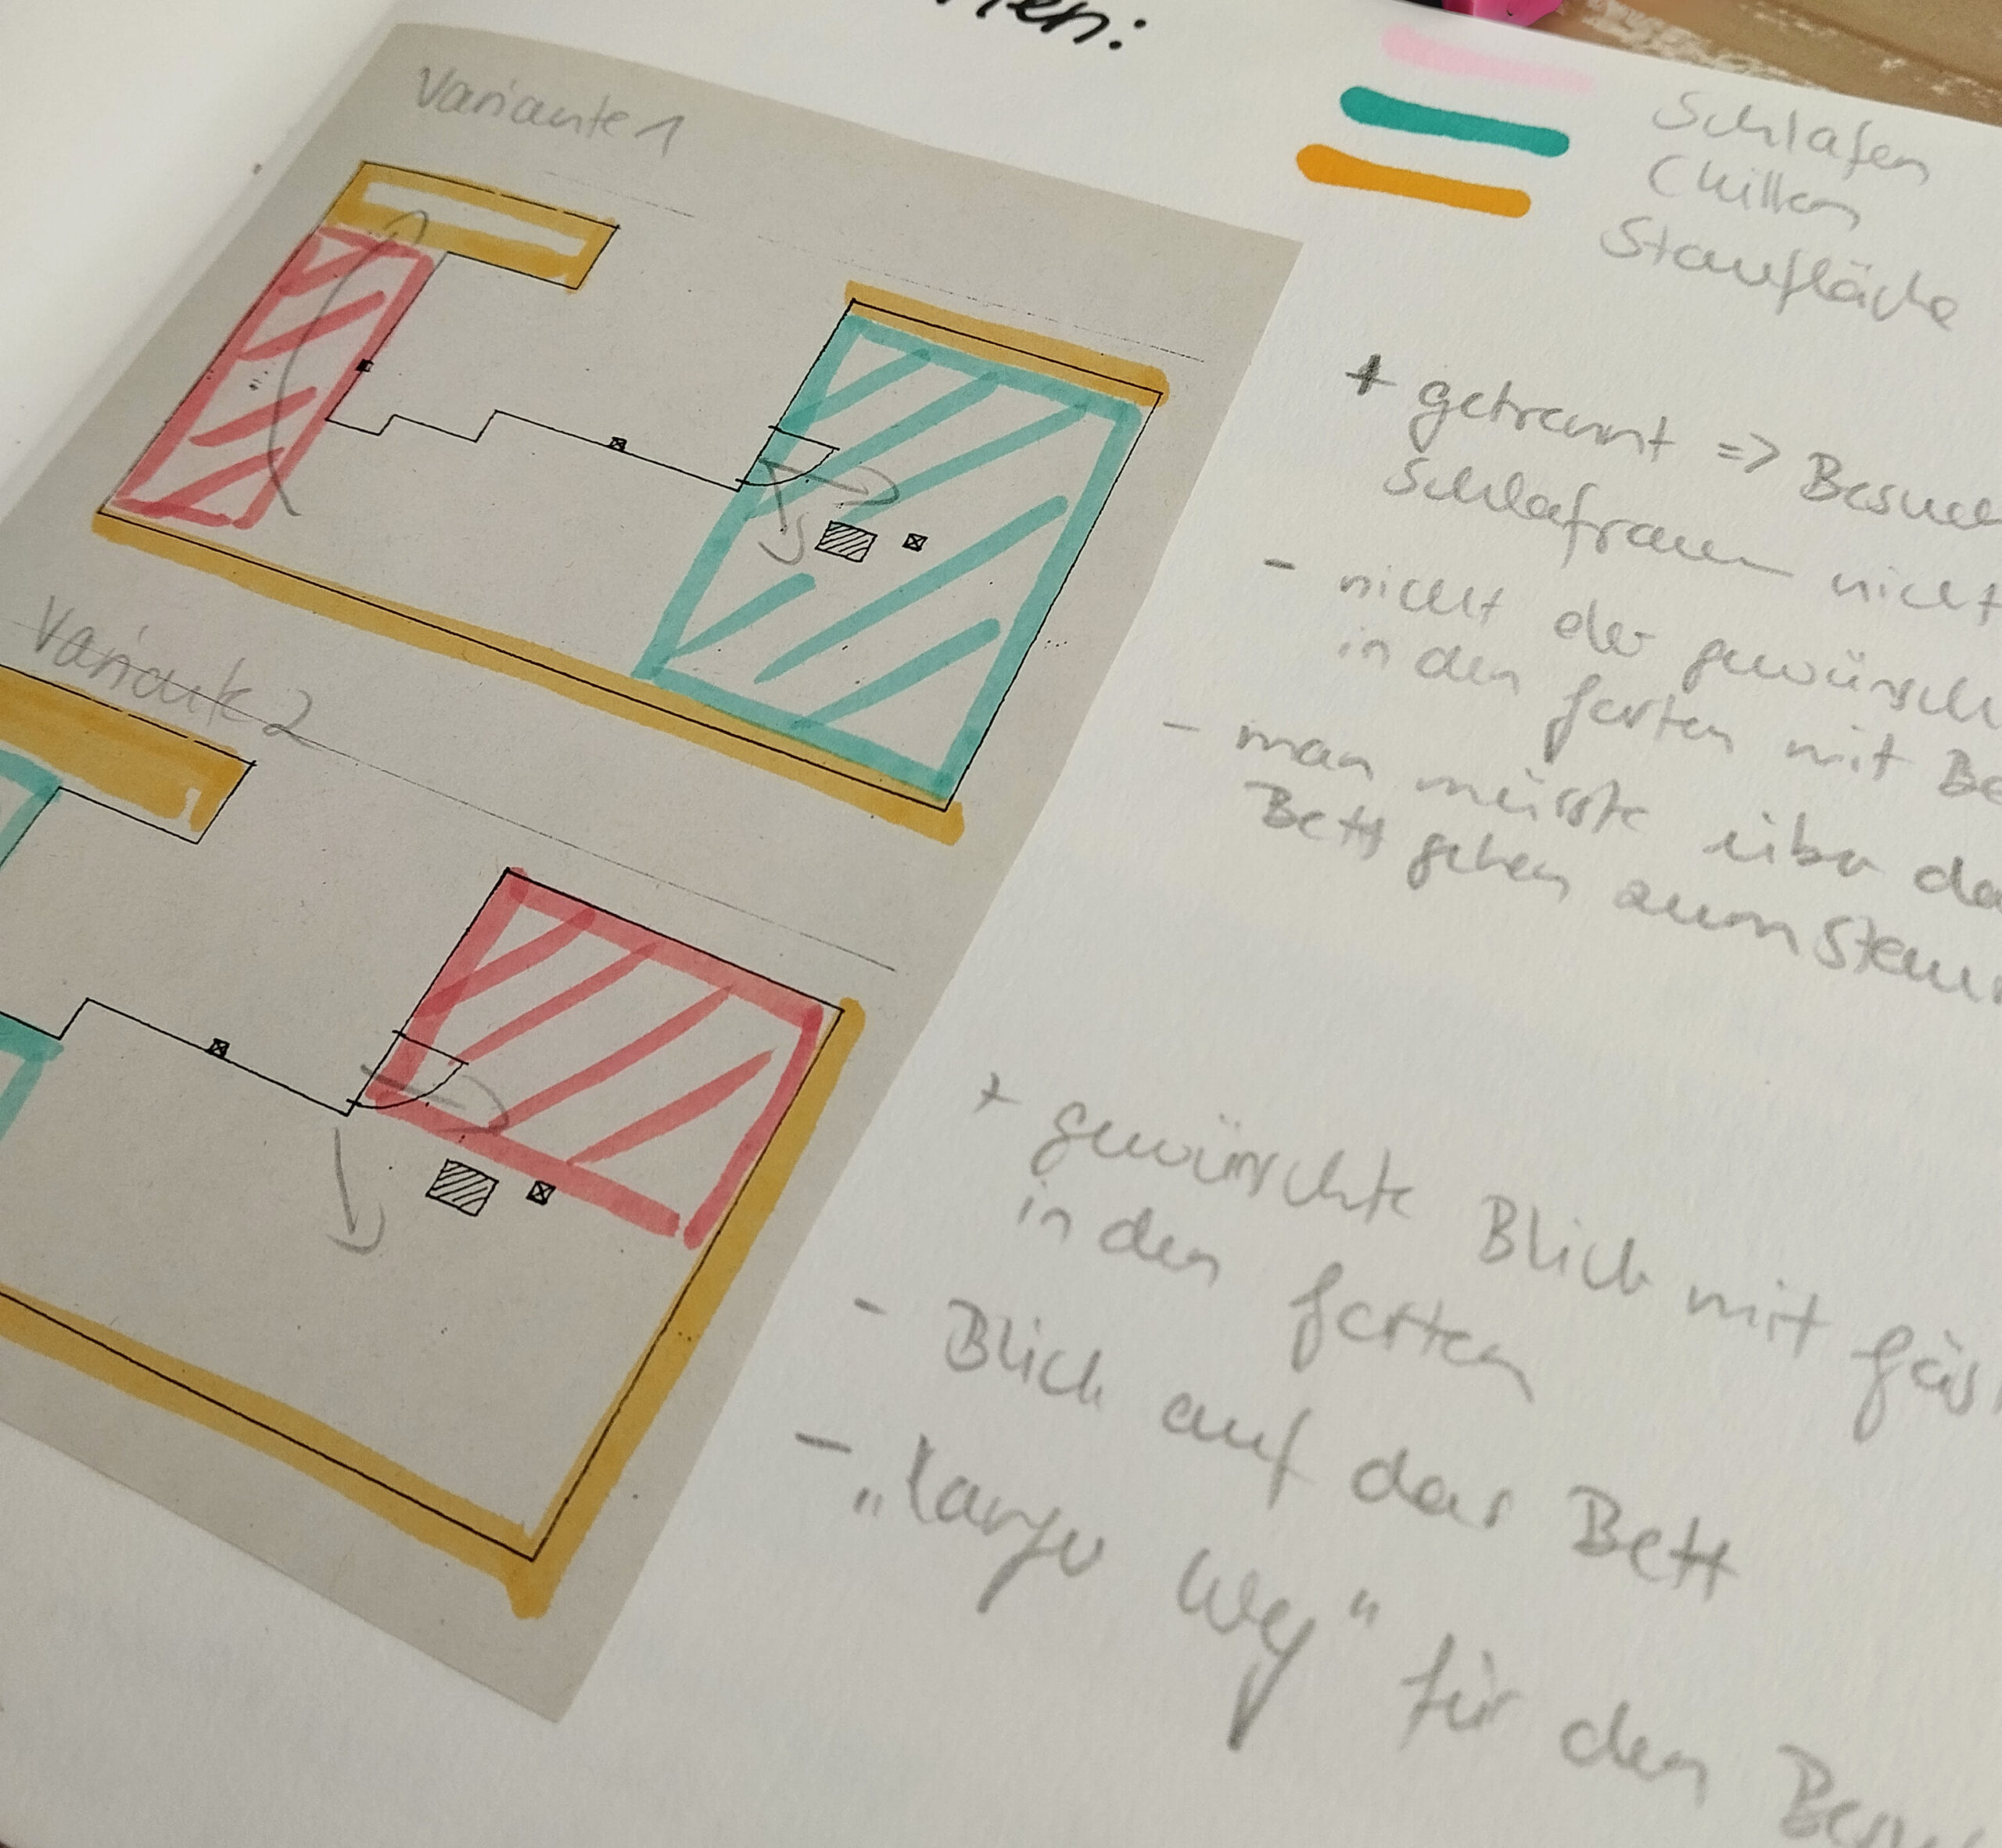 Variante 1
Schlafen
Chillen
Staufläche
+ getrennt => Besuch
Schlafraum nicht
- nicht der gewünsch
in den Garten mit Be
- man müsste über da
Bett gehen zum
Variante 2
+ gewünschte Blick mit Gäs
in den Garten
- Blick auf das Bett
- „langer Weg“ für den Besu